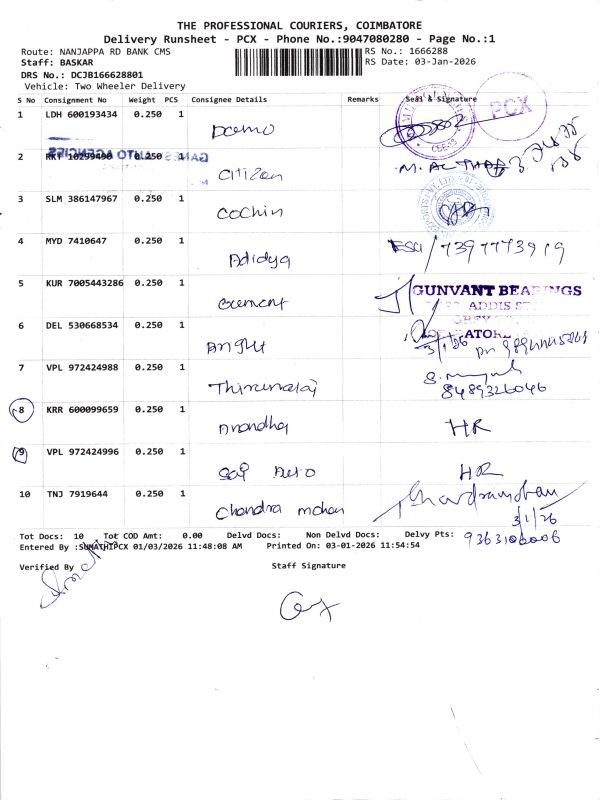 THE PROFESSIONAL COURIERS, COIMBATORE
Delivery Runsheet - PCX - Phone No.:9047080280 - Page No.:1
Route: NANJAPPA RD BANK CMS
RS No.: 1666288
Staff: BASKAR
RS Date: 03-Jan-2026
DRS No.: DCJB166628801
Vehicle: Two Wheeler Delivery
S No Consignment No Weight PCS Consignee Details Remarks Seal & Signature
PCX
1 LDH 600193434 0.250 1
2 RKT 10299490 0.250 1 Citizen
3 SLM 386147967 0.250 1 Cochin
4 MYD 7410647 0.250 1 Adidya / 7397773919
5 KUR 7005443286 0.250 1 GUNVANT BEARINGS
6 DEL 530668534 0.250 1 3/1/26
7 VPL 972424988 0.250 1 8489326046
8 KRR 600099659 0.250 1 HR
9 VPL 972424996 0.250 1 HR
10 TNJ 7919644 0.250 1 Chandra mohan
3/1/26
Tot Docs: 10 Tot COD Amt: 0.00 Delvd Docs: Non Delvd Docs: Delvy Pts: 9363106006
Entered By :SUMATHIPCX 01/03/2026 11:48:08 AM Printed On: 03-01-2026 11:54:54
Verified By Staff Signature